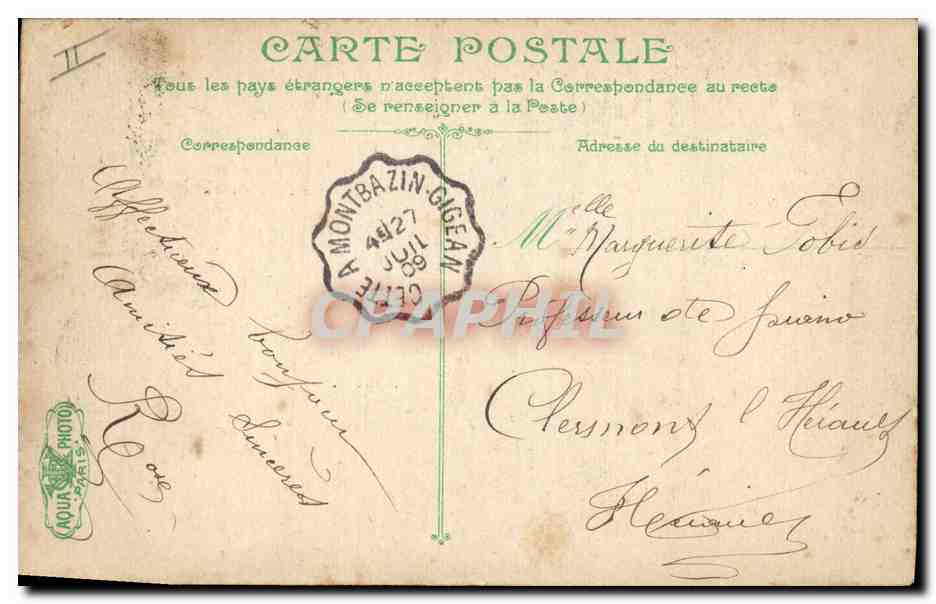 II
CARTE POSTALE
Tous les pays étrangers n'acceptent pas la Correspondance au recto
(Se renseigner à la Poste)
Correspondance
Adresse du destinataire
Affectueux bonjour
Sincères
Amitiés
Rose
CETTE A MONTBAZIN-GIGEAN
27
JUIL
09
Melle Marguerite Tobis
Professeur de piano
Clermont l'Hérault
Hérault
AQUA PHOTO
PARIS
CPAPHIL